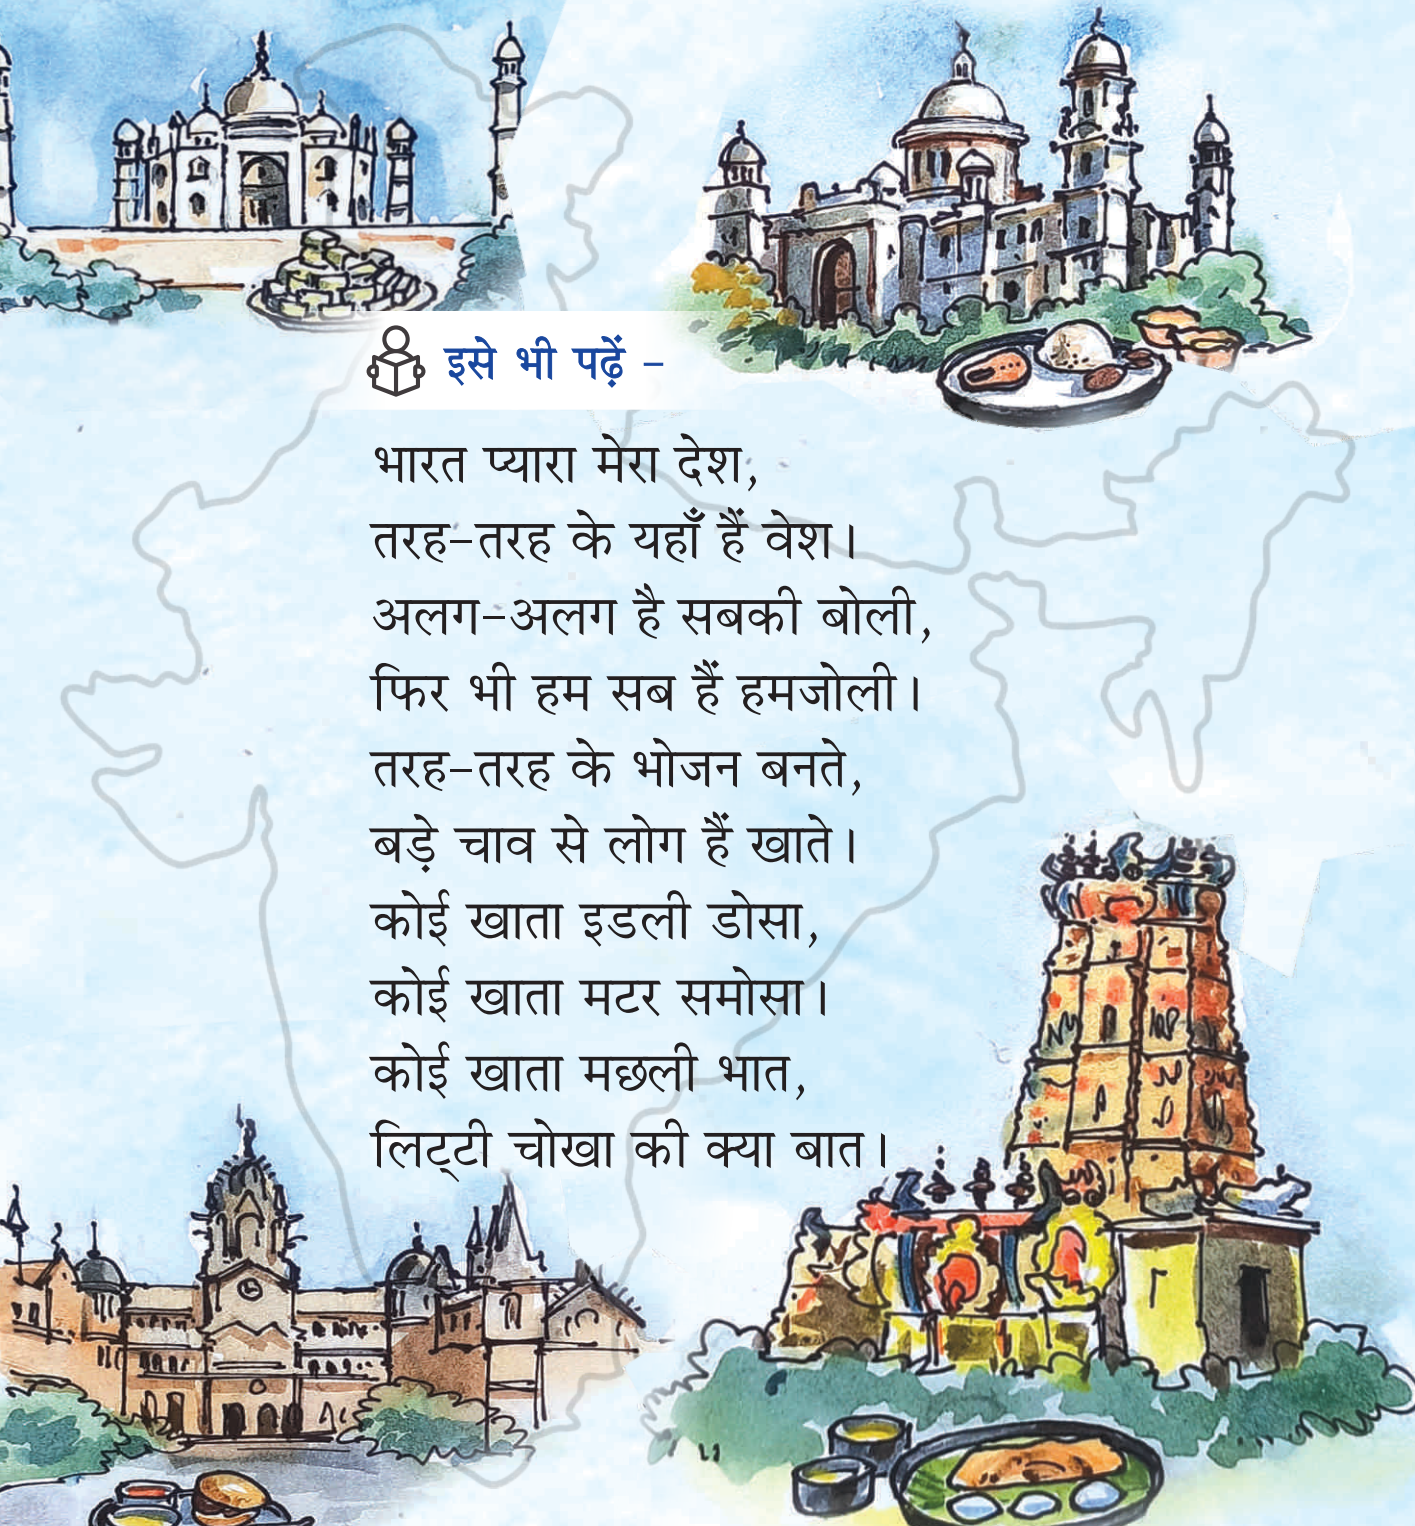 इसे भी पढ़ें –
भारत प्यारा मेरा देश,
तरह-तरह के यहाँ हैं वेश।
अलग-अलग है सबकी बोली,
फिर भी हम सब हैं हमजोली।
तरह-तरह के भोजन बनते,
बड़े चाव से लोग हैं खाते।
कोई खाता इडली डोसा,
कोई खाता मटर समोसा।
कोई खाता मछली भात,
लिट्टी चोखा की क्या बात।